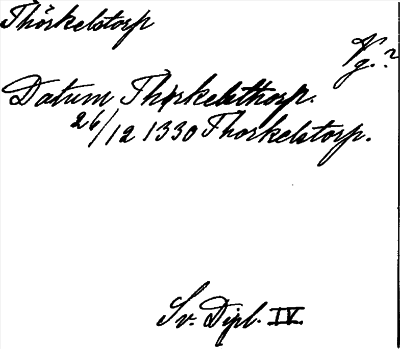 Thörkelstorp
Vg. ?
Datum Thörkelsthorp.
26/12 1330 Thorkelstorp.
Sv. Dipl. IV.